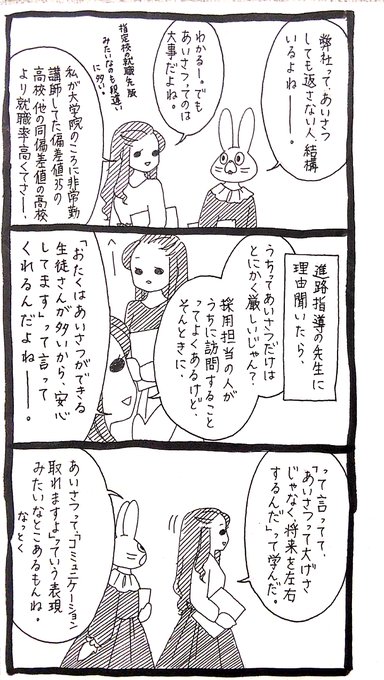 弊社って、あいさつ
しても返さない人、結構
いるよねー──。
わかるー。でも
あいさつってのは
大事だよね。
指定校の就職先版
みたいなのも段違い
に多い。
私が大学院のころに非常勤
講師してた偏差値35の
高校、他の同偏差値の高校
より就職率高くてさー、
進路指導の先生に
理由聞いたら、
うちってあいさつだけは
とにかく厳しいじゃん?
採用担当の人が
うちに訪問すること
ってよくあるけど、
そんときに、
「おたくはあいさつができる
生徒さんが多いから、安心
してます」って言って
くれるんだよねー──。
って言ってて、
「あいさつって大げさ
じゃなく、将来を左右
するんだ」って学んだ。
あいさつって、「コミュニケーション
取れますよ」っていう表現
みたいなとこあるもんね。
なっとく